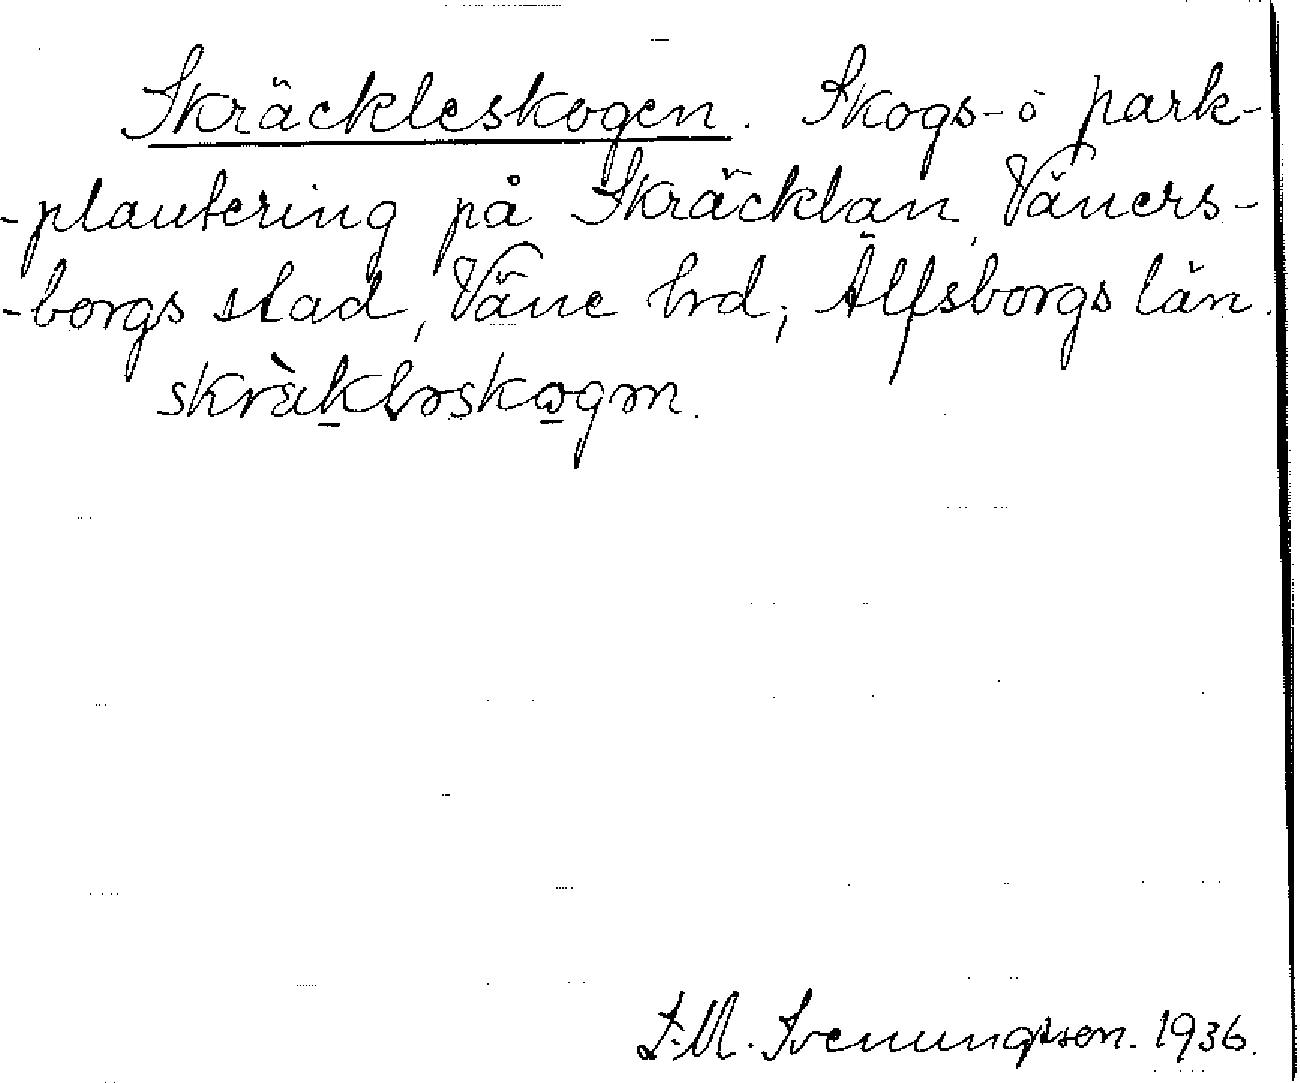 Skräckleskogen. Skogs- o park-
-plantering på Skräcklan, Väners-
-borgs stad, Väne hrd; Älfsborgs län.
skràkləskogən.
F. M. Svenungsson. 1936.